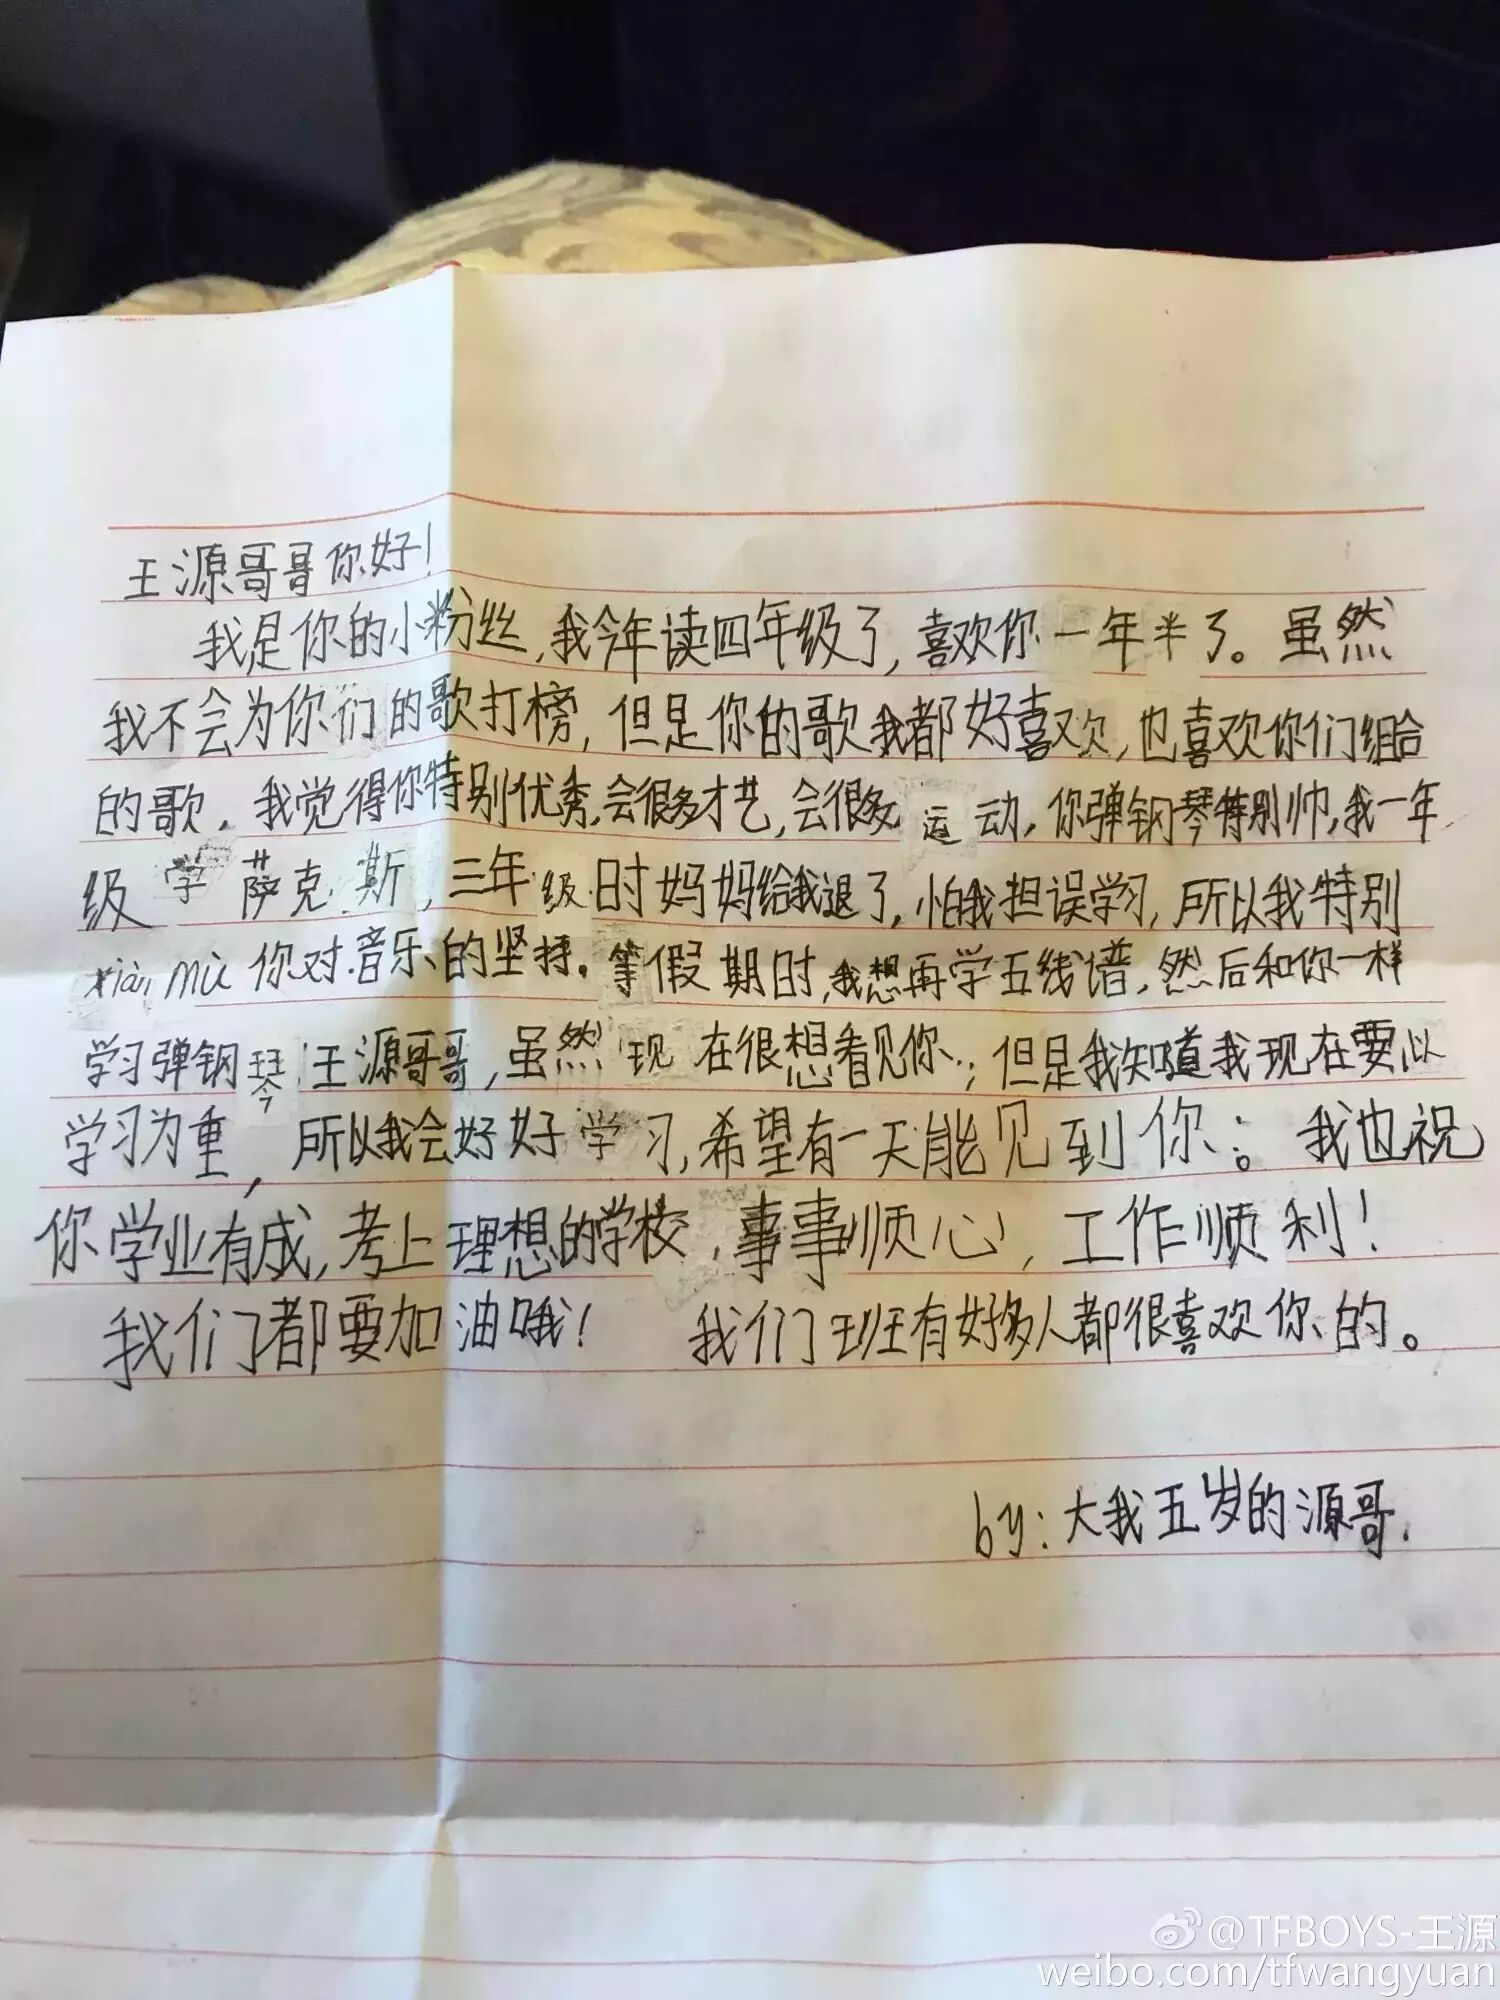 王源哥哥你好！
我是你的小粉丝，我今年读四年级了，喜欢你一年半了。虽然
我不会为你们的歌打榜，但是你的歌我都好喜欢，也喜欢你们组合
的歌。我觉得你特别优秀，会很多才艺，会很多运动，你弹钢琴特别帅，我一年
级学萨克斯，三年级时妈妈给我退了，怕我担误学习，所以我特别
xiàn mù 你对音乐的坚持。等假期时，我想再学五线谱，然后和你一样
学习弹钢琴 王源哥哥，虽然现在很想看见你；但是我知道我现在要以
学习为重，所以我会好好学习，希望有一天能见到你；我也祝
你学业有成，考上理想的学校，事事顺心，工作顺利！
我们都要加油哦！ 我们班有好多人都很喜欢你的。
by：大我五岁的源哥.
@TFBOYS-王源
weibo.com/tfwangyuan